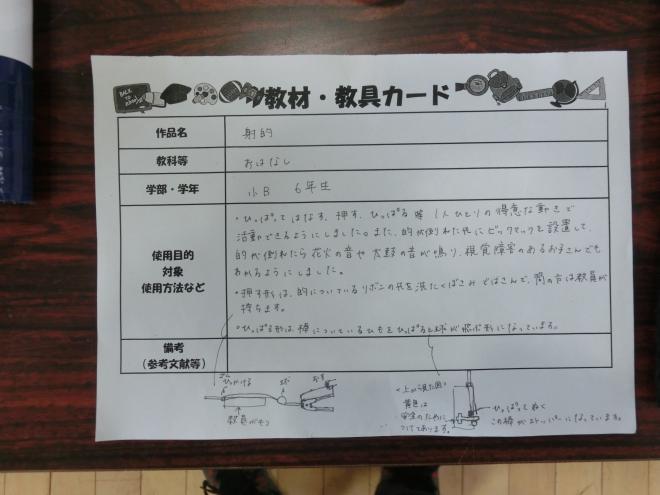 BACK TO
教材・教具カード
作品名 射的
教科等 おはなし
学部・学年 小B 6年生
使用目的
対象
使用方法など
・ひっぱってはなす、押す、ひっぱる等 1人ひとりの得意な動きで
活動できるようにしました。また、的が倒れた先にビックマックを設置して、
的が倒れたら花火の音や太鼓の音が鳴り、視覚障害のあるお子さんでも
わかるようにしました。
・押す形は、的についているリボンの先を洗たくばさみではさんで、間の方は教員が
持ちます。
・ひっぱる形は、棒についているひもをひっぱると球が形になっています。
備考
(参考文献等)
ひっかける
おす
教員がもつ
<上から見た図>
黄色は
安全のために
つけてあります。
ひっぱってぬく
この棒がストッパーになっています。